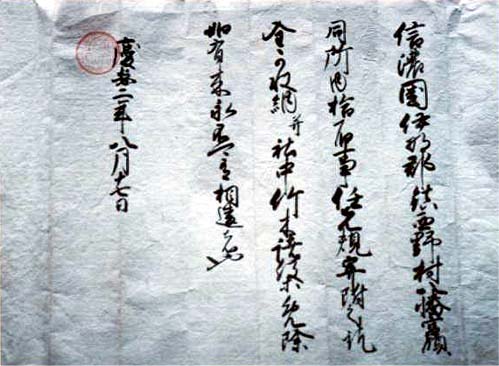 信濃國伊那郡野村領
同所内拾石事任先規寄附之訖
全可収納并社中竹木諸役等免除
如有来永不可有相違者也
慶安二年八月十七日